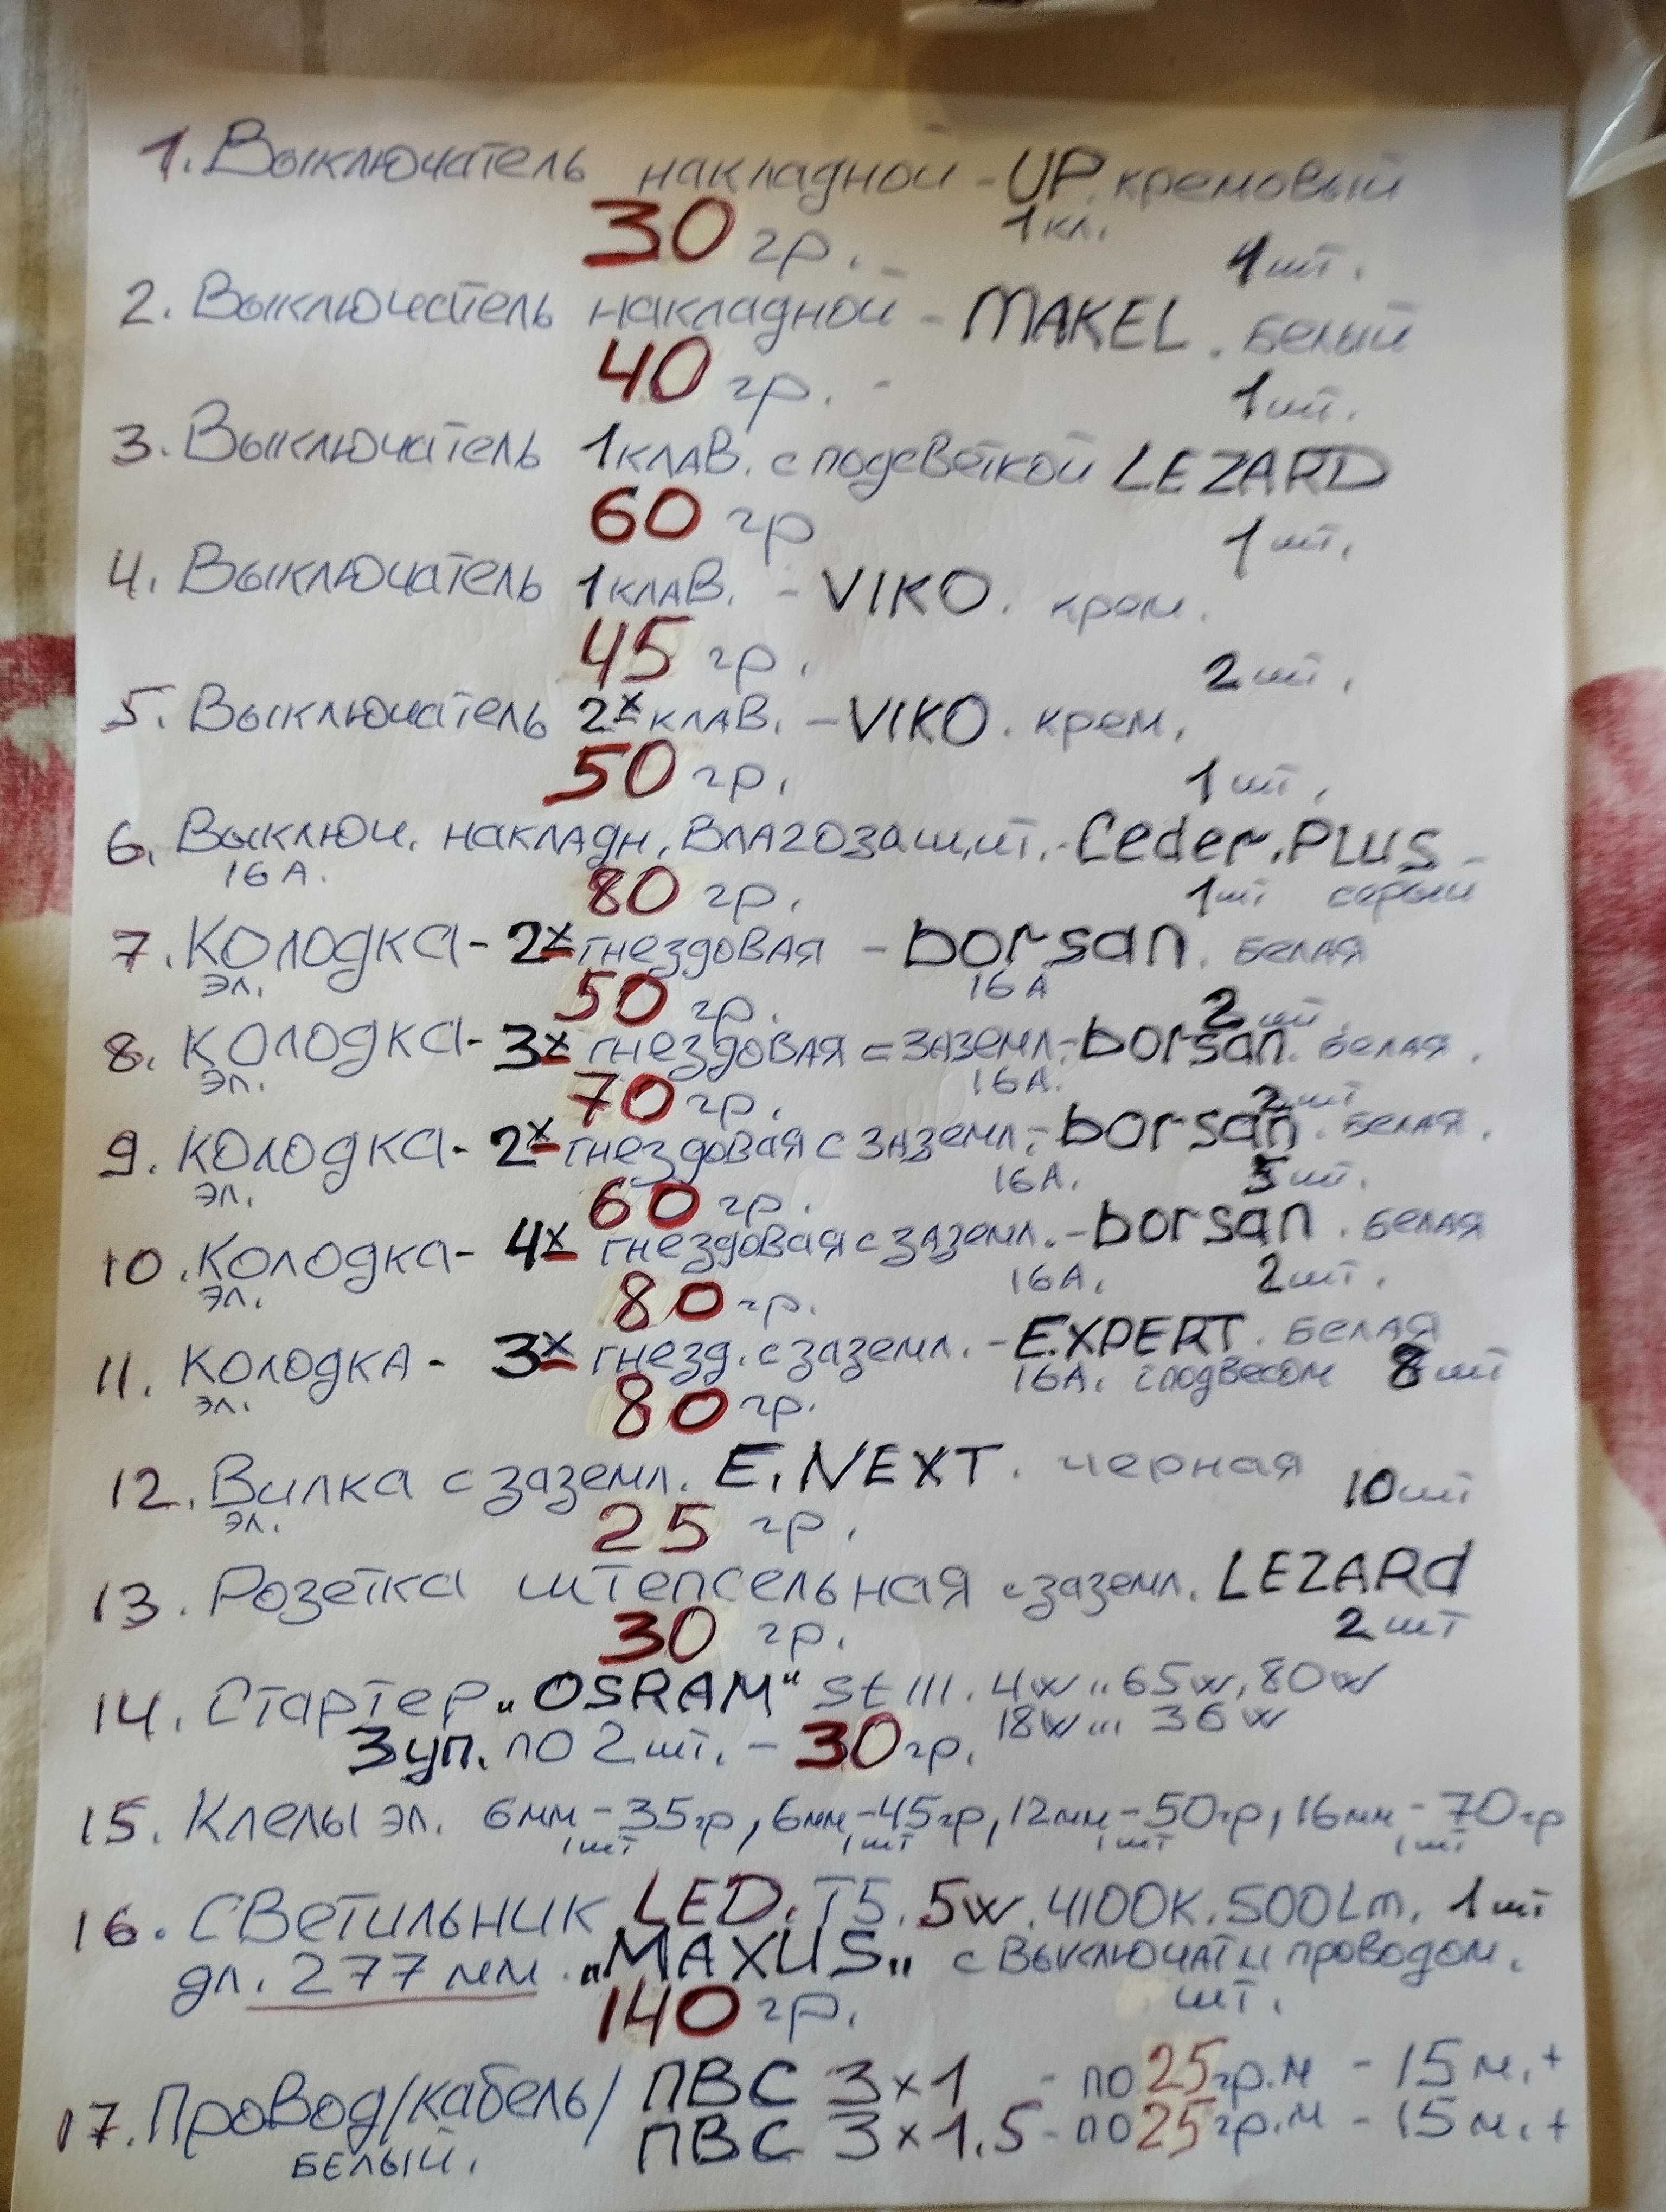 1. Выключатель накладной - UP. кремовый
1 кл.
30 гр.
1 шт.
2. Выключатель накладной - MAKEL. белый
40 гр. -
1 шт.
3. Выключатель 1 клав. с подсветкой LEZARD
60 гр
1 шт.
4. Выключатель 1 клав. - VIKO. крем.
45 гр.
2 шт.
5. Выключатель 2х клав. - VIKO. крем.
50 гр.
1 шт.
6. Выключ. накладн. влагозащит. - Ceder. PLUS -
16 А. 80 гр. 1 шт серый
7. Колодка - 2х гнездовая - borsan. белая
эл. 50 гр. 16 А
2 шт.
8. Колодка - 3х гнездовая с заземл. - borsan. белая.
эл. 70 гр. 16 А.
2 шт
9. Колодка - 2х гнездовая с заземл. - borsan. белая.
эл. 60 гр. 16 А. шт.
10. Колодка - 4х гнездовая с заземл. - borsan. белая
эл. 80 гр. 16 А. 2 шт.
11. Колодка - 3х гнезд. с заземл. - EXPERT. белая
эл. 80 гр. 16 А. с подвесом 8 шт
12. Вилка с заземл. E.NEXT. черная 10 шт
эл. 25 гр.
13. Розетка штепсельная с заземл. LEZARd
30 гр. 2 шт
14. Стартер „OSRAM" St 111. 4w .. 65w, 80w
18w ... 36w
3 уп. по 2 шт. - 30 гр.
15. Клемы эл. 6мм - 35гр, 6мм - 45гр, 12мм - 50гр, 16мм - 70гр
1 шт 1 шт 1 шт 1 шт
16. Светильник LED. T5. 5w. 4100K. 500Lm. 1 шт
дл. 277 мм. „MAXUS„ с выключат и проводом.
140 гр. шт.
17. Провод/кабель/ ПВС 3х1 - по 25 гр.м - 15 м.+
белый. ПВС 3х1.5 - по 25 гр.м - 15 м.+